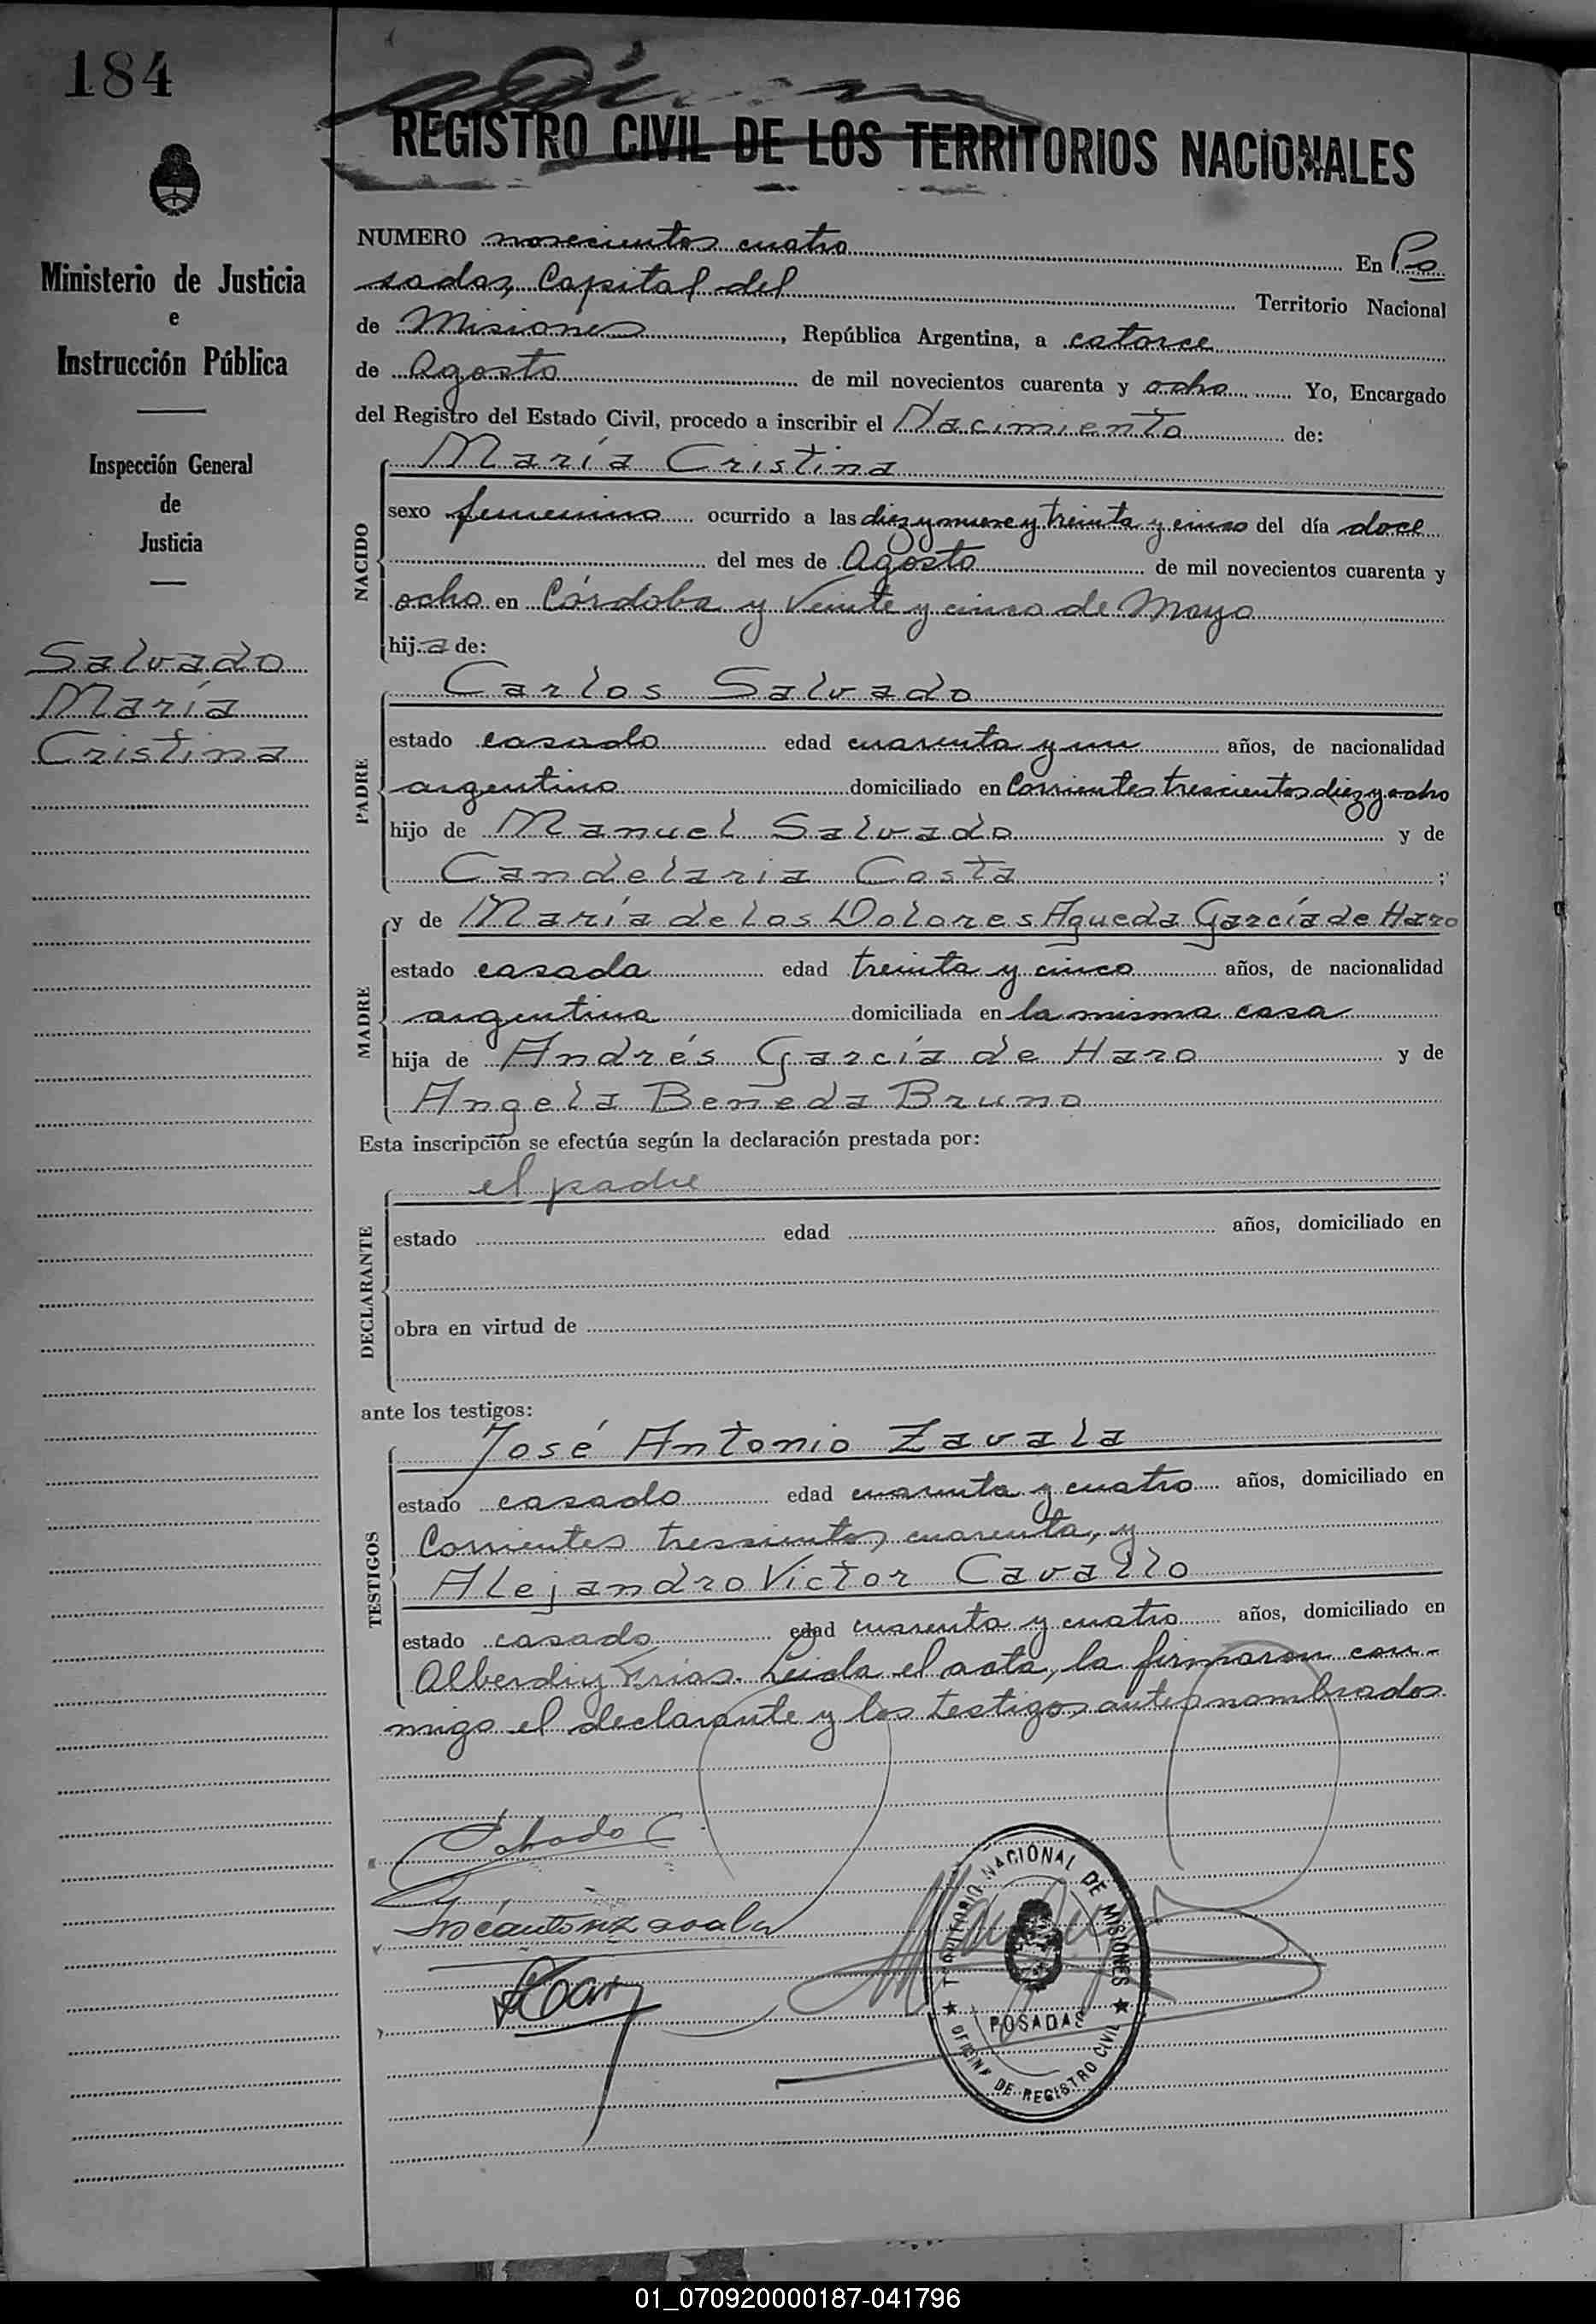 184
Ministerio de Justicia
e
Instrucción Pública
Inspección General
de
Justicia
Salvado
María
Cristina
REGISTRO CIVIL DE LOS TERRITORIOS NACIONALES
NUMERO novecientos cuatro En Po
sadas, Capital del Territorio Nacional
de Misiones, República Argentina, a catorce
de Agosto de mil novecientos cuarenta y ocho Yo, Encargado
del Registro del Estado Civil, procedo a inscribir el Nacimiento de:
NACIDO
María Cristina
sexo femenino ocurrido a las diez y nueve y treinta y cinco del día doce
del mes de Agosto de mil novecientos cuarenta y
ocho en Córdoba y Veinte y cinco de Mayo
hija de:
PADRE
Carlos Salvado
estado casado edad cuarenta y un años, de nacionalidad
argentino domiciliado en Corrientes trescientos diez y ocho
hijo de Manuel Salvado y de
Candelaria Costa;
MADRE
y de María de los Dolores Agueda García de Haro
estado casada edad treinta y cinco años, de nacionalidad
argentina domiciliada en la misma casa
hija de Andrés García de Haro y de
Angela Beneda Bruno
Esta inscripción se efectúa según la declaración prestada por:
DECLARANTE
el padre
estado edad años, domiciliado en
obra en virtud de
ante los testigos:
TESTIGOS
José Antonio Zavala
estado casado edad cuarenta y cuatro años, domiciliado en
Corrientes trescientos cuarenta, y
Alejandro Victor Cavallo
estado casado edad cuarenta y cuatro años, domiciliado en
Alberdi y Frias. Leida el acta, la firmaron con-
migo el declarante y los testigos antes nombrados
Salvado C
José Antonio Zavala
TERRITORIO NACIONAL DE MISIONES
POSADAS
OFICINA DE REGISTRO CIVIL
01_070920000187-041796